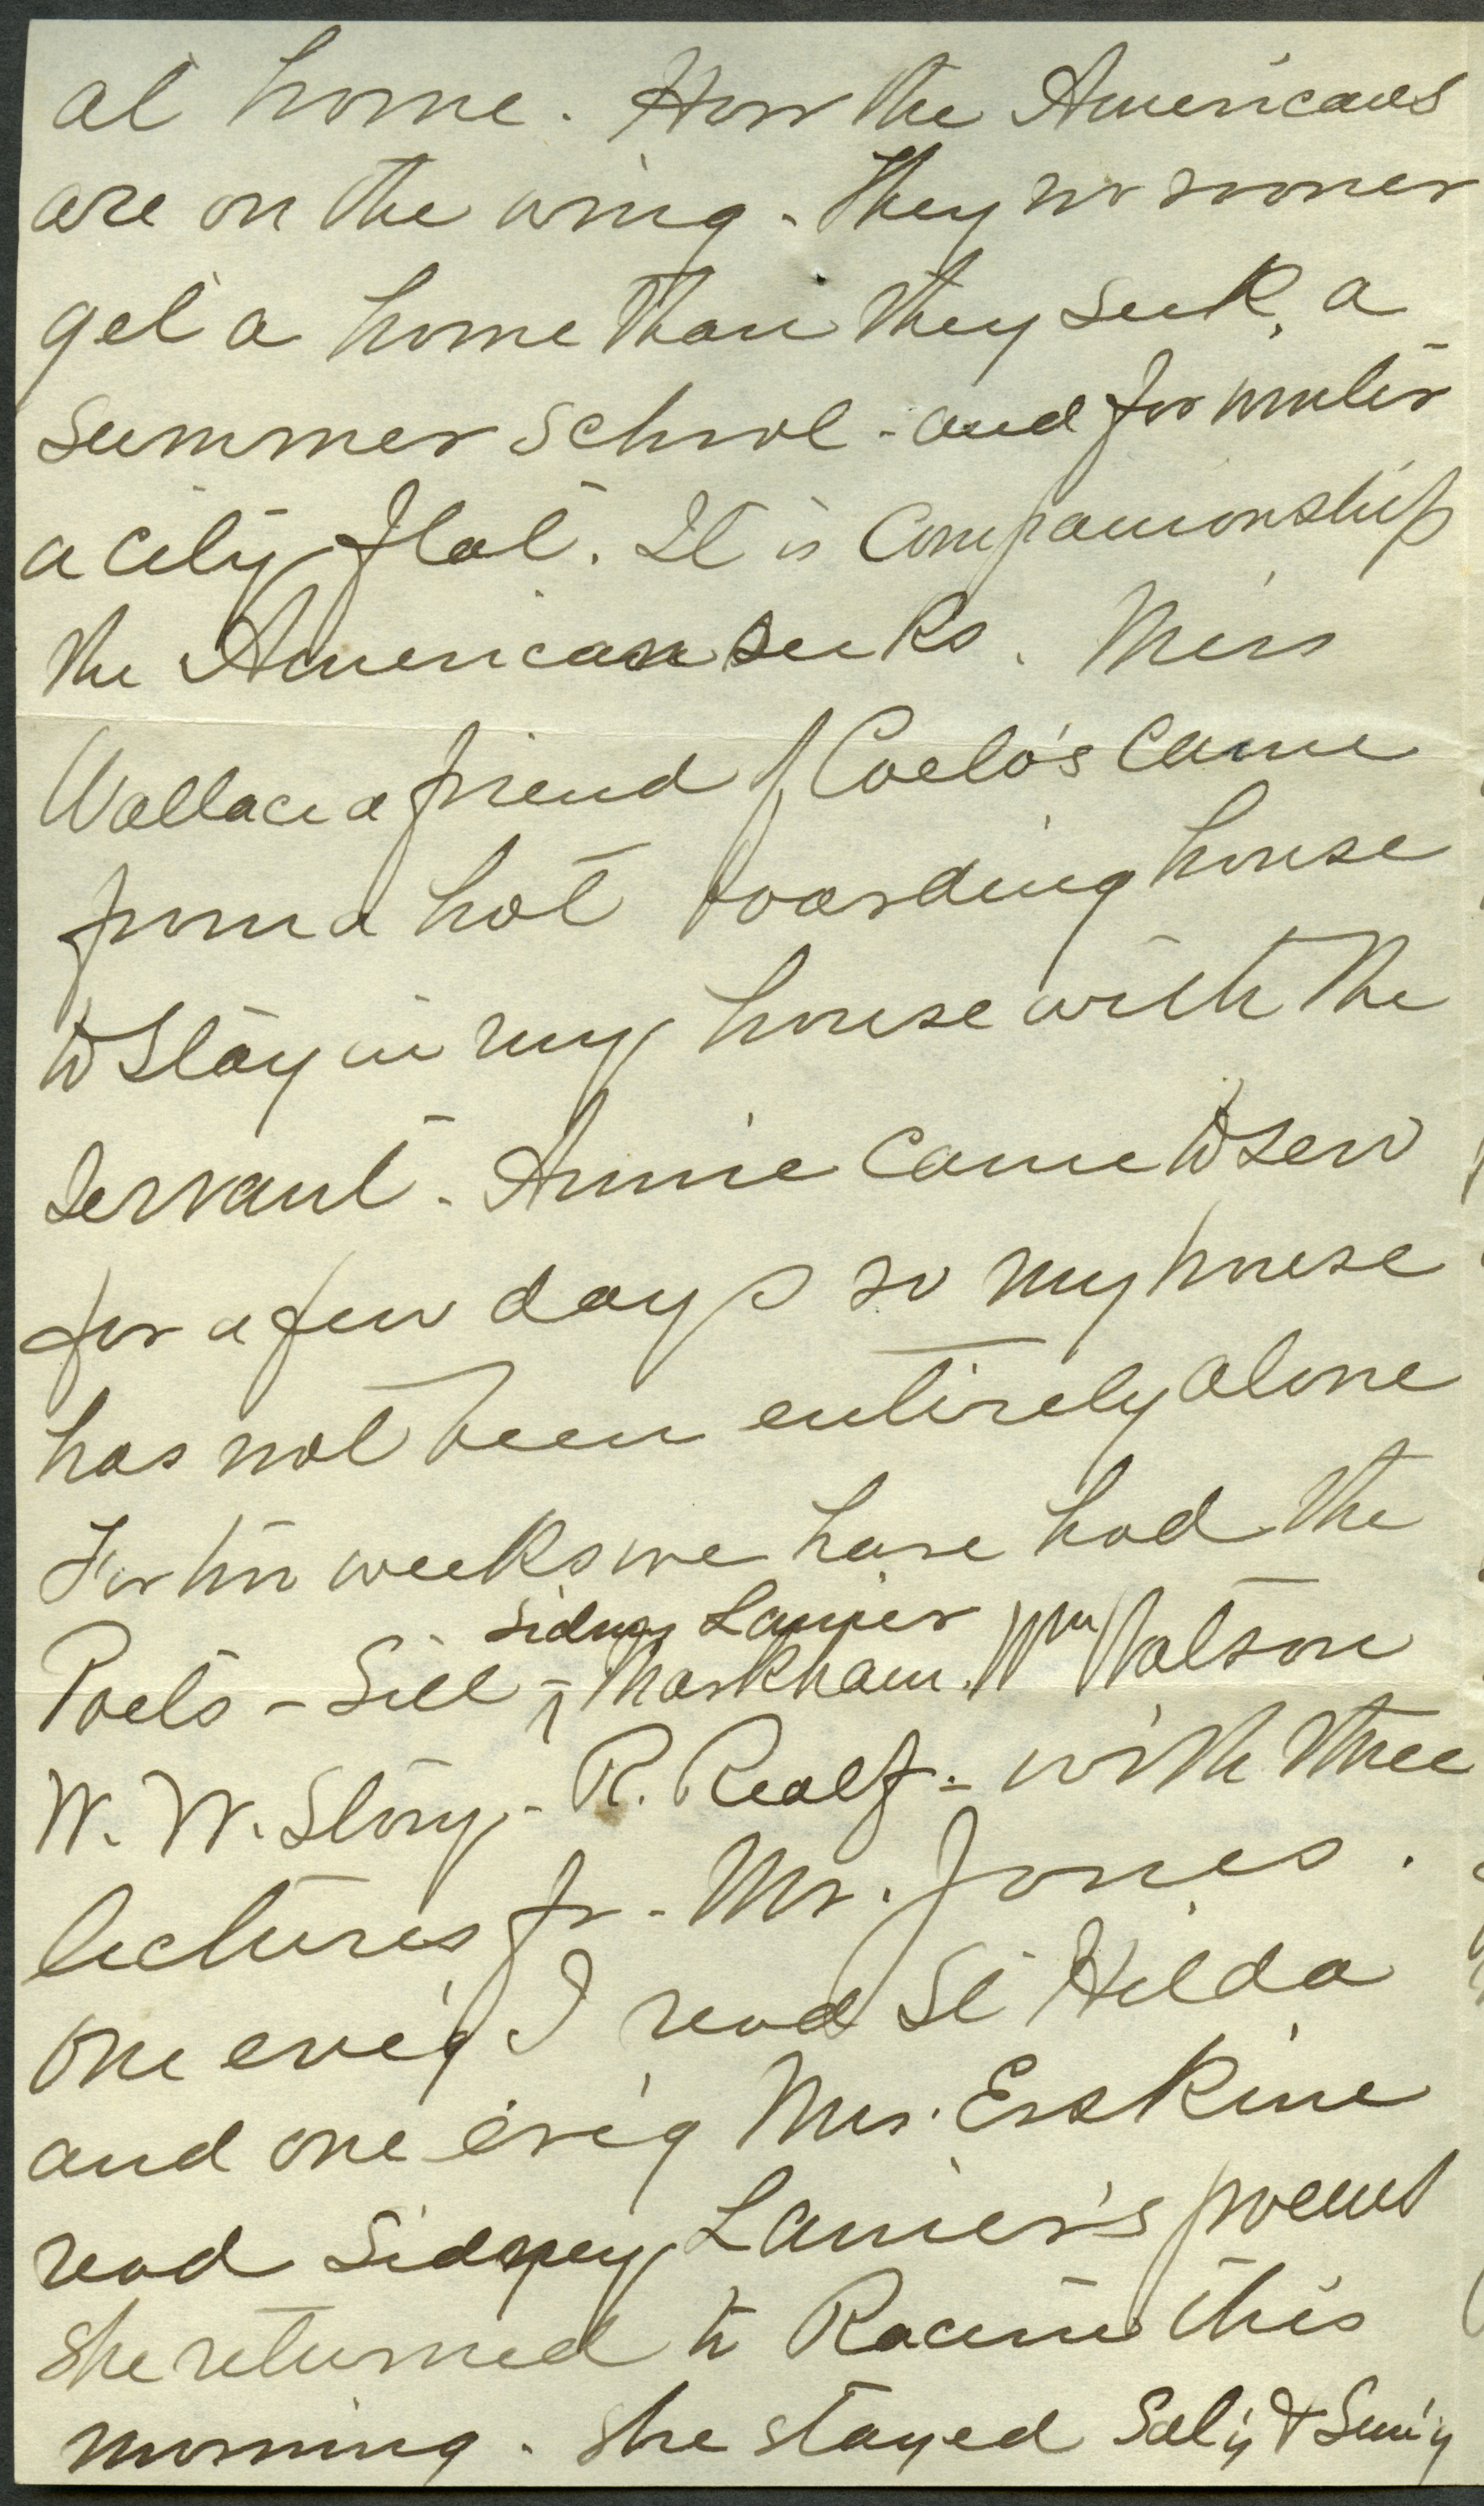 at home. How the Americans
are on the wing. They no sooner
get a home than they seek, a
summer school - and for winter
a city flat. It is Companionship
the American seeks. Miss
Wallace a friend of Coelo's came
from a hot boarding house
to stay in my house with the
servant. Annie came to sew
for a few days so my house
has not been entirely alone
For two weeks we have had the
Sidney Lanier
Poets - Sill - ^ Markham. Wm Watson
W. W. Story - R. Realf - with three
lectures fr. Mr. Jones.
One eve'g I read St Hilda
and one eve'g Mrs. Erskine
read Sidney Lanier's poems
She returned to Racine this
morning. She stayed Sat'y & Sun'y